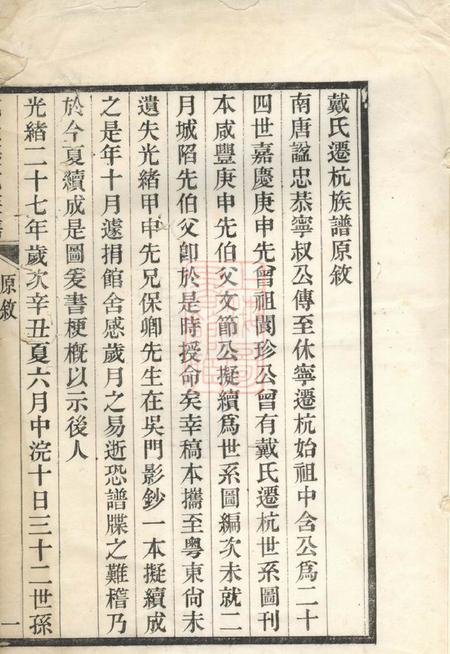 戴氏遷杭族譜原敘
南唐諡忠恭寧叔公傳至休寧遷杭始祖中含公爲二十
四世嘉慶庚申先曾祖閬珍公曾有戴氏遷杭世系圖刊
本咸豐庚申先伯父文節公擬續爲世系圖編次未就二
月城陷先伯父卽於是時授命矣幸稿本攜至粵東尙未
遺失光緒甲申先兄保卿先生在吳門影鈔一本擬續成
之是年十月遽捐館舍感歲月之易逝恐譜牒之難稽乃
於今夏續成是圖爰書梗槪以示後人
光緒二十七年歲次辛丑夏六月中浣十日三十二世孫
原敘
一